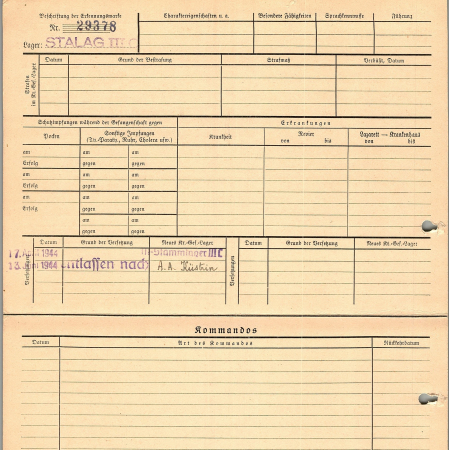 Beschriftung der Erkennungsmarke
Nr. 29378
Lager: STALAG III C
Charaktereigenschaften u. a.
Besondere Fähigkeiten
Sprachkenntnisse
Führung
Strafen im Kr.-Gef.-Lager
Datum
Grund der Bestrafung
Strafmaß
Verbüßt, Datum
Schutzimpfungen während der Gefangenschaft gegen
Pocken
Sonstige Impfungen
(Ty.-Paraty., Ruhr, Cholera usw.)
Erkrankungen
Krankheit
Revier
von bis
Lazarett — Krankenhaus
von bis
am am am
Erfolg gegen gegen
am am am
Erfolg gegen gegen
am am am
Erfolg gegen gegen
am am
gegen gegen
Versetzungen
Datum
Grund der Versetzung
Neues Kr.-Gef.-Lager
Versetzungen
Datum
Grund der Versetzung
Neues Kr.-Gef.-Lager
1944 III C
1944 entlassen nach A.A. Küstrin
Kommandos
Datum
Art des Kommandos
Rückkehrdatum